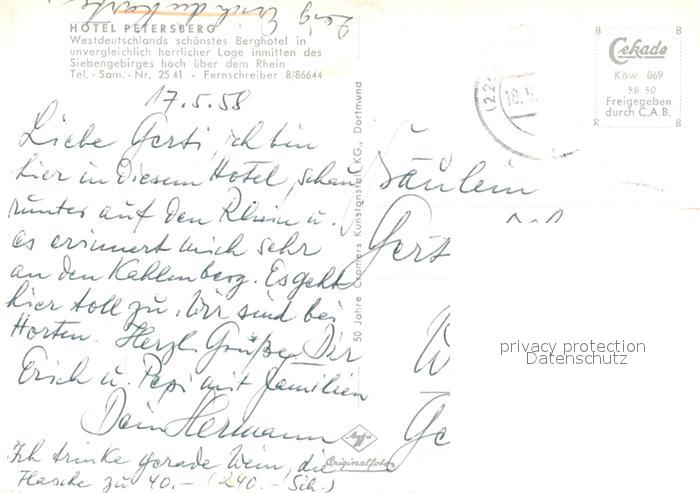 Zeig Erich die Karte!
HOTEL PETERSBERG
Westdeutschlands schönstes Berghotel in
unvergleichlich herrlicher Lage inmitten des
Siebengebirges hoch über dem Rhein
Tel.-Sam.-Nr. 25 41 - Fernschreiber 8/86644
17.5.58
Liebe Gerti, ich bin
hier in diesem Hotel, schau
runter auf den Rhein u.
es erinnert mich sehr
an den Kahlenberg. Es geht
hier toll zu. Wir sind bei
Horten. Herzl. Grüße Dir
Erich u. Pepi mit Familien
Dein Hermann
Ich trinke gerade Wein, die
Flasche zu 40.- (240.- Sch.)
50 Jahre Cramers Kunstanstalt KG., Dortmund
Agfa
Originalfoto
(22
18.5.
B B
Cekade
Köw 069
58 50
Freigegeben
durch C.A.B.
R B
Fräulein
Gert
W
Ge
privacy protection
Datenschutz